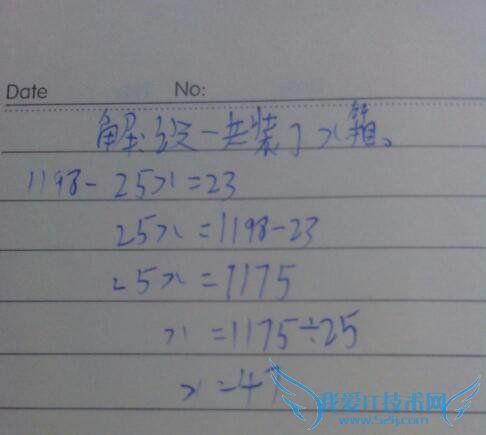 Date No:
解:设一共装了x箱。
1198-25x=23
25x=1198-23
25x=1175
x=1175÷25
x=47
我爱IT技术网
www.52ij.com